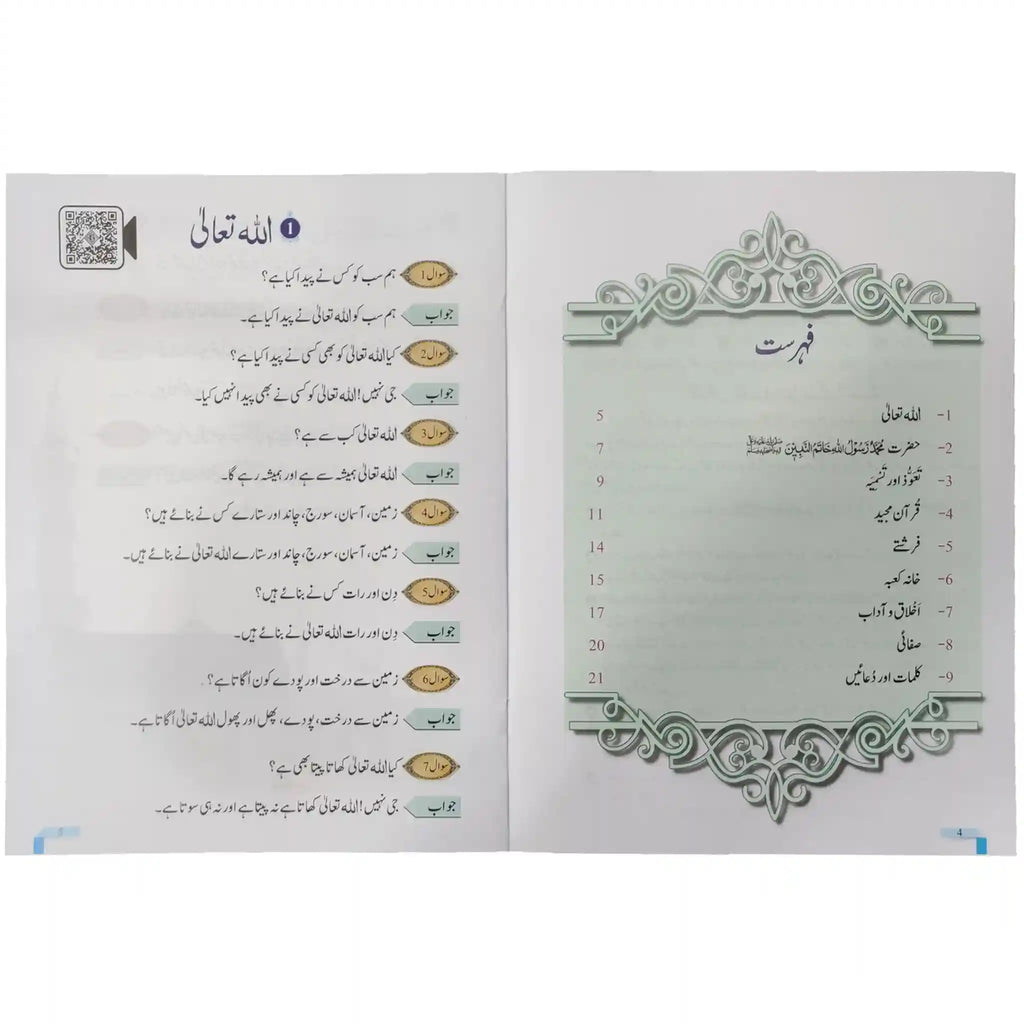 فہرست
1- اللہ تعالیٰ 5
2- حضرت مُحَمَّدٌ رَّسُوْلُ اللہِ خَاتَمُ النَّبِیّٖنَ ﷺ 7
3- تَعَوُّذ اور تَسْمِیَہ 9
4- قُرآن مجید 11
5- فرشتے 14
6- خانہ کعبہ 15
7- اَخلاق و آداب 17
8- صفائی 20
9- کلمات اور دُعائیں 21
4
1 اللہ تعالیٰ
سوال 1 ہم سب کو کس نے پیدا کیا ہے؟
جواب ہم سب کو اللہ تعالیٰ نے پیدا کیا ہے۔
سوال 2 کیا اللہ تعالیٰ کو بھی کسی نے پیدا کیا ہے؟
جواب جی نہیں! اللہ تعالیٰ کو کسی نے بھی پیدا نہیں کیا۔
سوال 3 اللہ تعالیٰ کب سے ہے؟
جواب اللہ تعالیٰ ہمیشہ سے ہے اور ہمیشہ رہے گا۔
سوال 4 زمین، آسمان، سورج، چاند اور ستارے کس نے بنائے ہیں؟
جواب زمین، آسمان، سورج، چاند اور ستارے اللہ تعالیٰ نے بنائے ہیں۔
سوال 5 دِن اور رات کس نے بنائے ہیں؟
جواب دِن اور رات اللہ تعالیٰ نے بنائے ہیں۔
سوال 6 زمین سے درخت اور پودے کون اُگاتا ہے؟
جواب زمین سے درخت، پودے، پھل اور پھول اللہ تعالیٰ اُگاتا ہے۔
سوال 7 کیا اللہ تعالیٰ کھاتا پیتا بھی ہے؟
جواب جی نہیں! اللہ تعالیٰ کھاتا ہے نہ پیتا ہے اور نہ ہی سوتا ہے۔
5